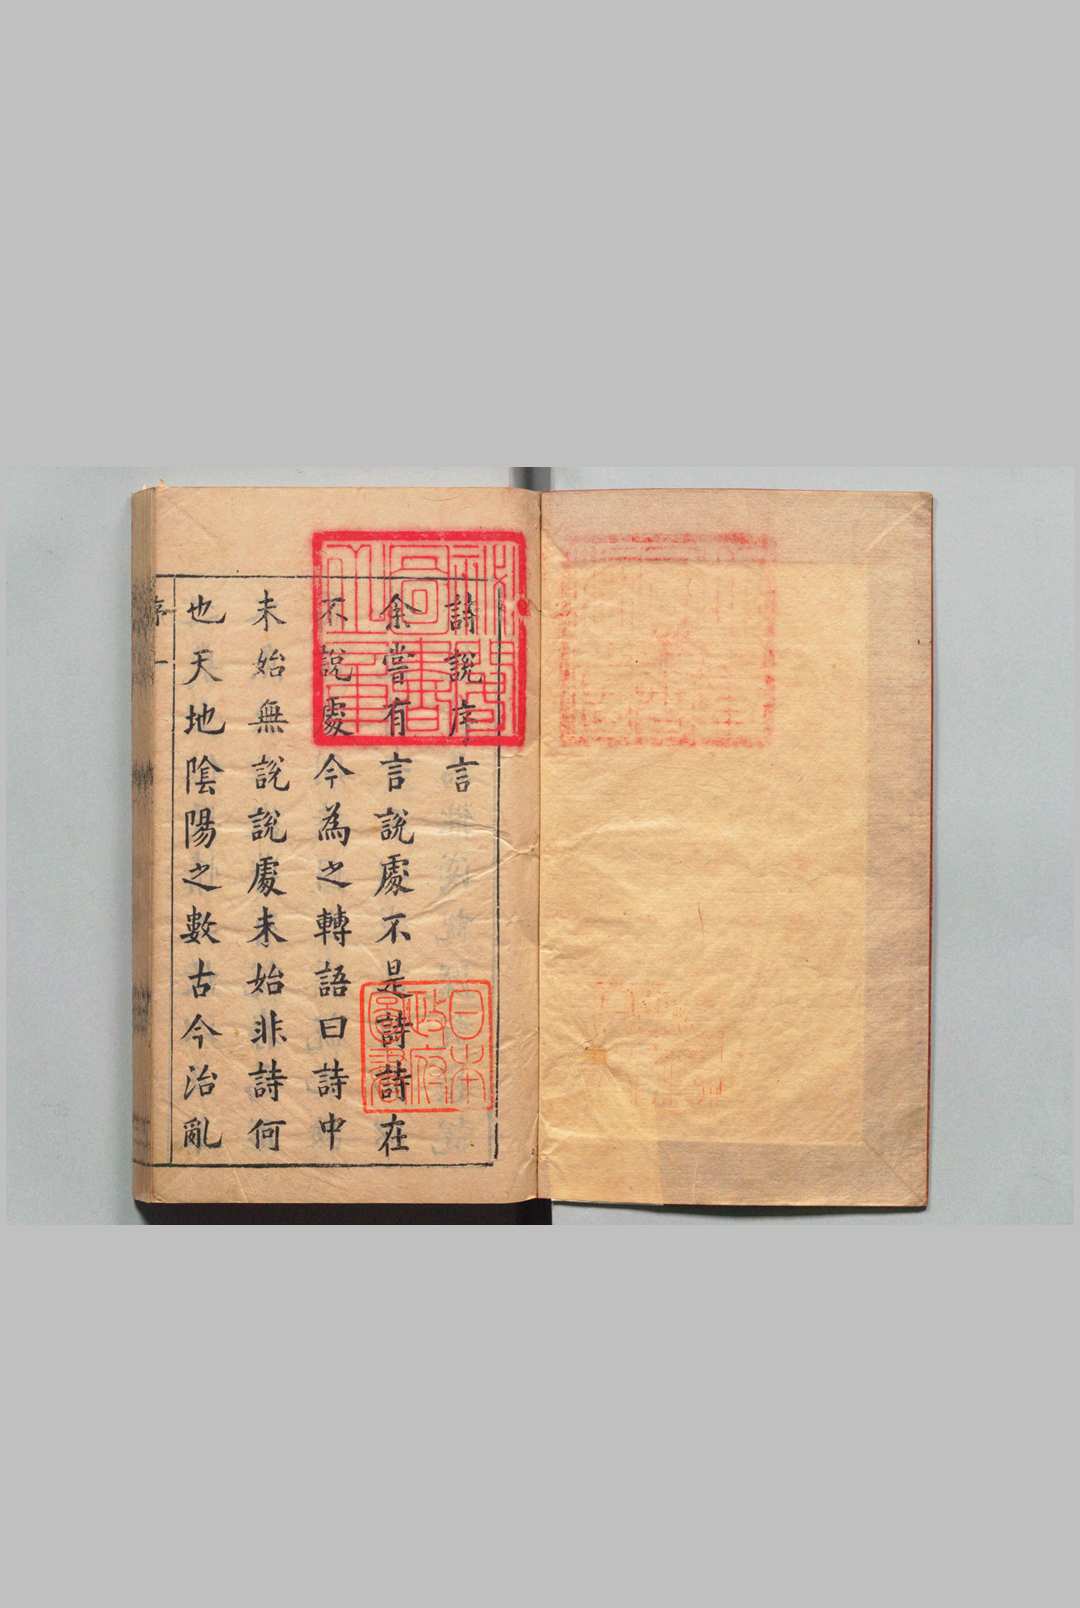 詩說序言
余嘗有言說處不是詩詩在
不說處今為之轉語曰詩中
未始無說說處未始非詩何
也天地陰陽之數古今治亂
序 一
日本
政府
圖書